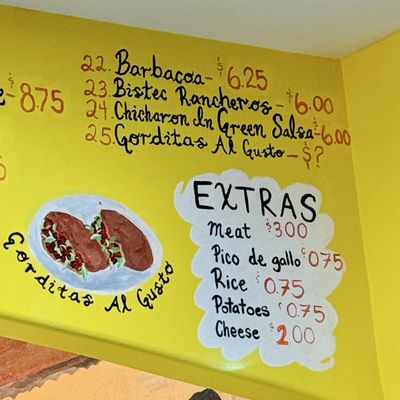 22. Barbacoa - $6.25
23. Bistec Rancheros - $6.00
24. Chicharon In Green Salsa - $6.00
25. Gorditas Al Gusto - $?
$8.75
EXTRAS
Meat $3.00
Pico de gallo $0.75
Rice $0.75
Potatoes $0.75
Cheese $2.00
Gorditas Al Gusto